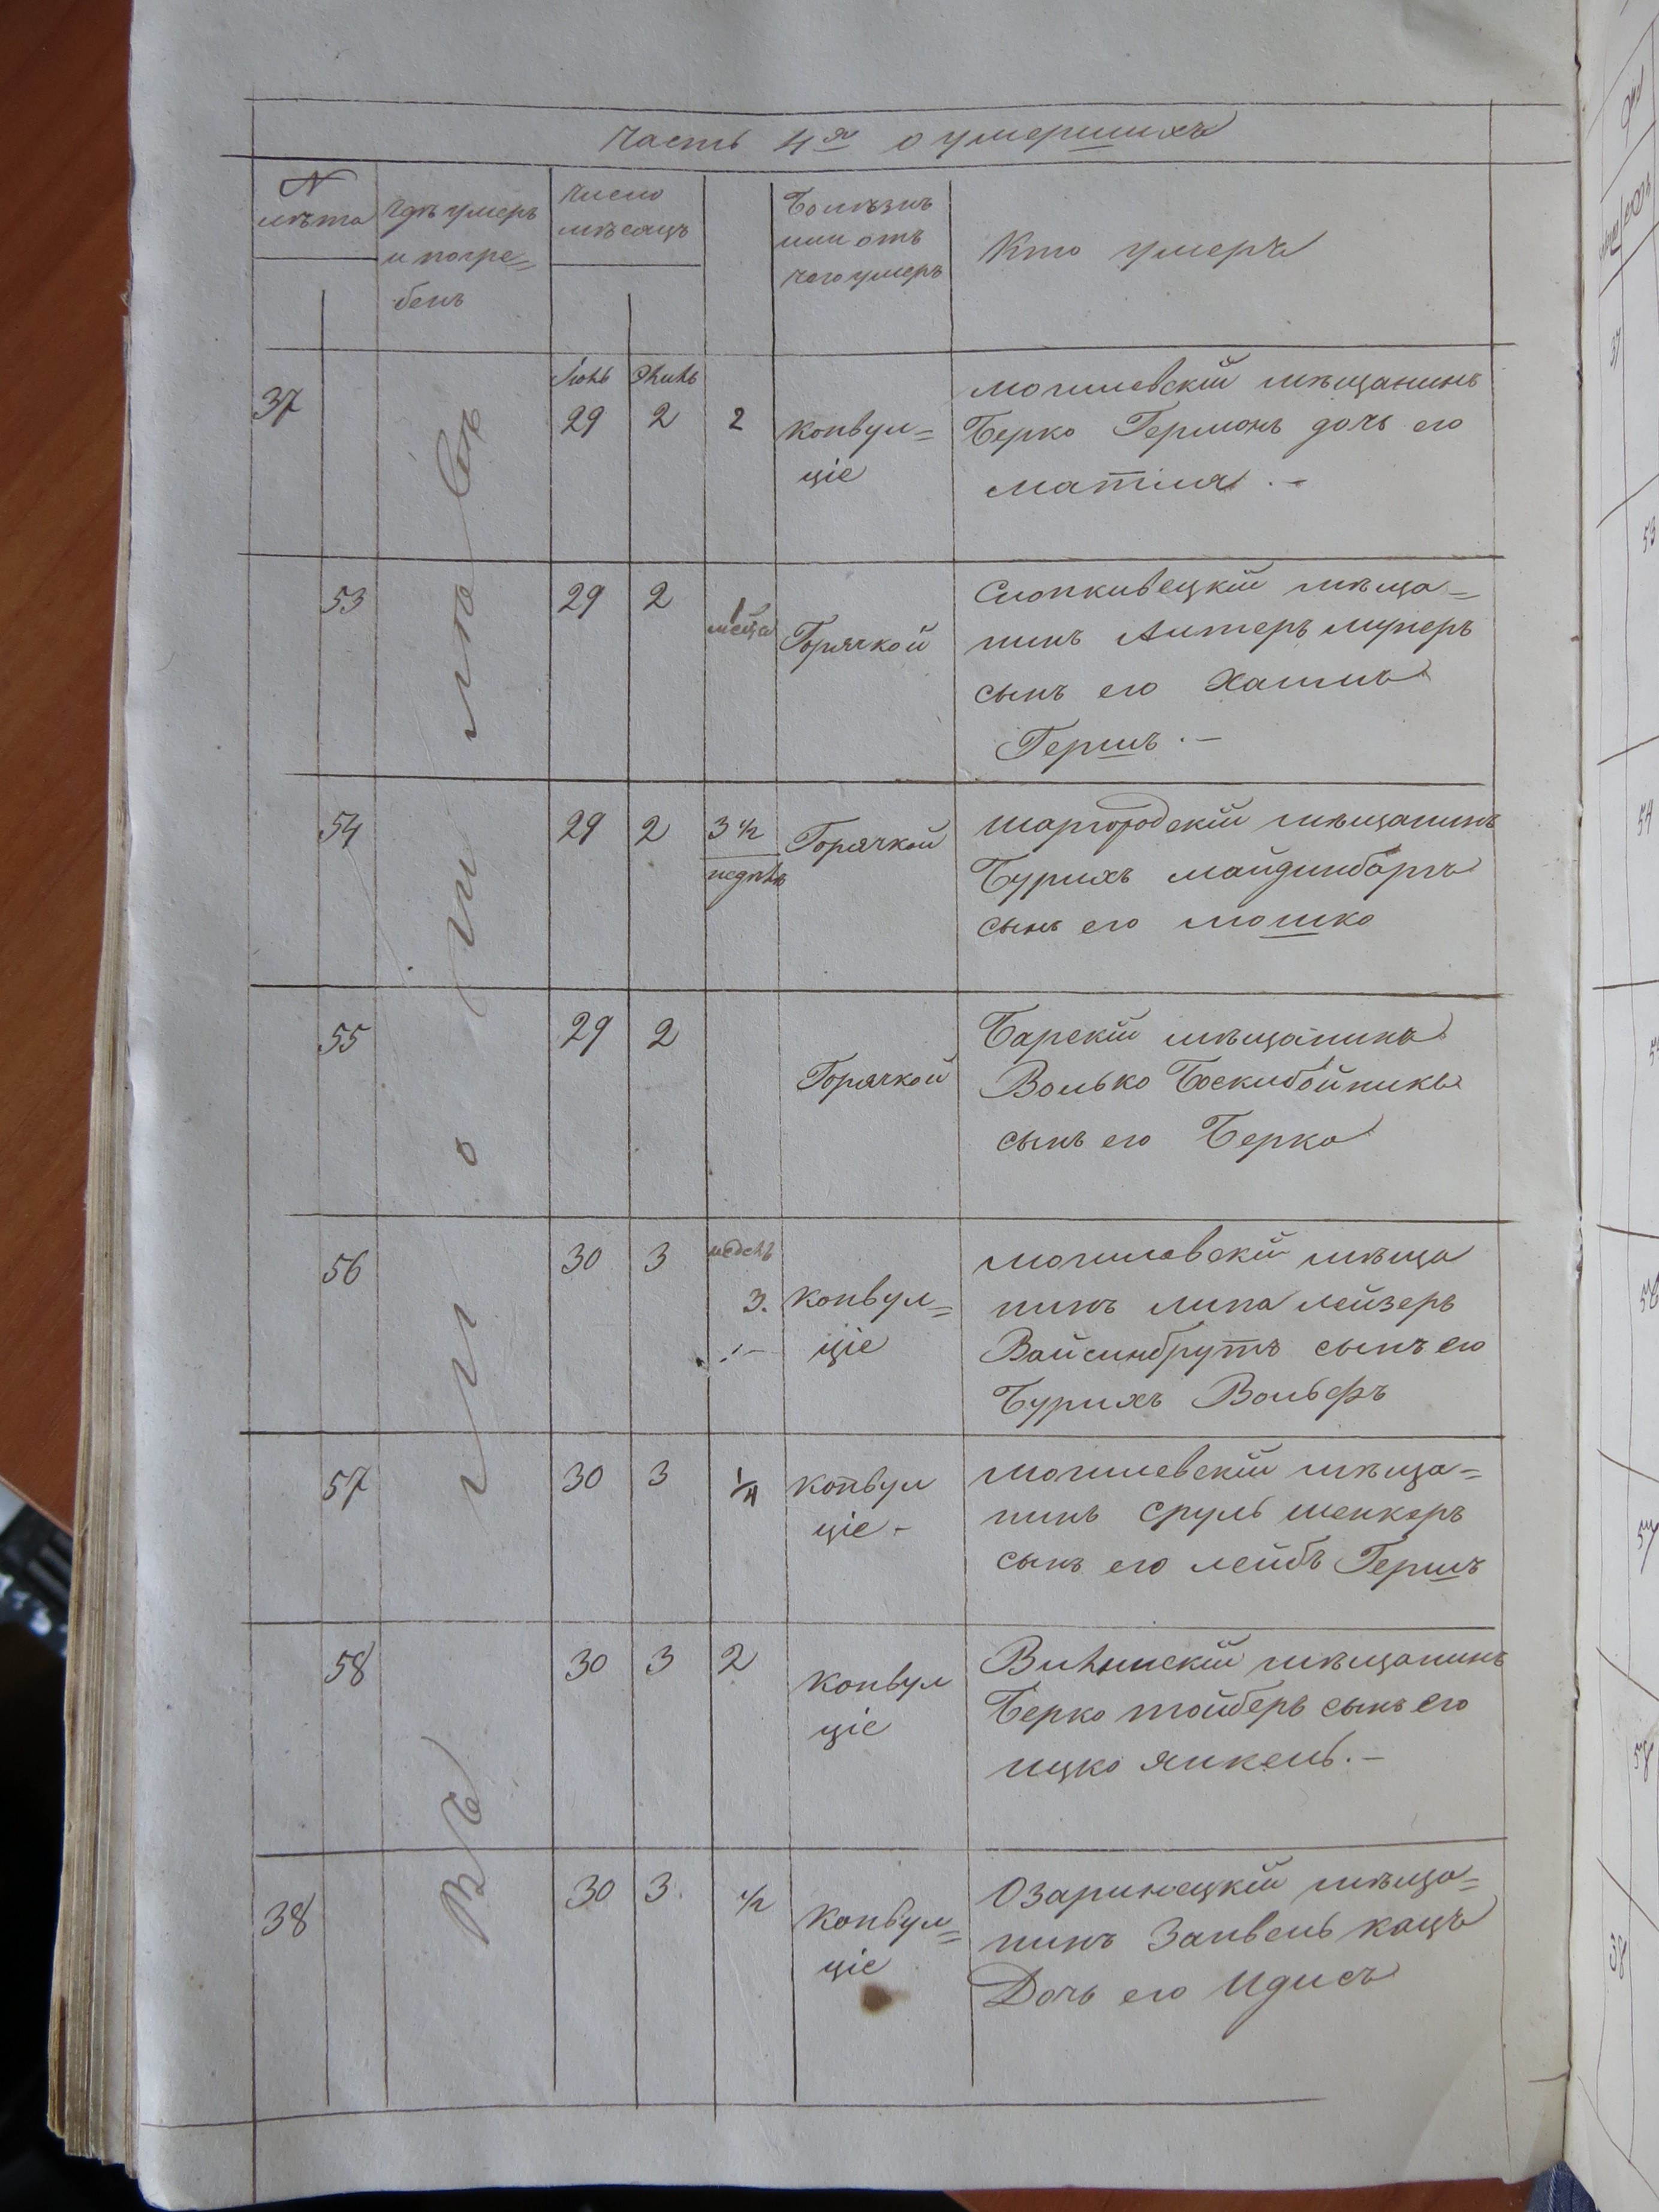 Часть 4я о умершихъ
N
лѣта
Гдѣ умеръ
и погре=
бенъ
Число
мѣсяцъ
Болѣзнь
или отъ
чего умеръ
Кто умеръ
Въ Могилевѣ
37
Іюнь
29
2
2
конвул=
ціе
могилевскій мѣщанинъ
Берко Германъ дочь его
матля.-
53
29
2
1
меца
Горячкой
мѣща=
нинъ Алтеръ
сынъ его Хаимъ
Гершъ.-
54
29
2
3 1/2
недѣль
Горячкой
шаргородскій мѣщанинъ
Бурихъ майдинбаргъ
сынъ его мошко
55
29
2
Горячкой
Барскій мѣщанинъ
Волько Боскибойникъ
сынъ его Берко
56
30
3
недель
3.
конвул=
ціе
могилевскій мѣща
нинъ липа лейзеръ
Вайсинбрутъ сынъ его
Бурихъ Вольфъ
57
30
3
1/4
конвул
ціе -
могилевскій мѣща=
нинъ Сруль шенкеръ
сынъ его лейбъ Гершъ
58
30
3
2
конвул
ціе
мѣщанинъ
Берко тойберъ сынъ его
ицко янкель.-
38
30
3.
1/2
конвул=
ціе
Озаринецкій мѣща=
нинъ Занвель кацъ
Дочь его Идисъ
53
54
57
58
38